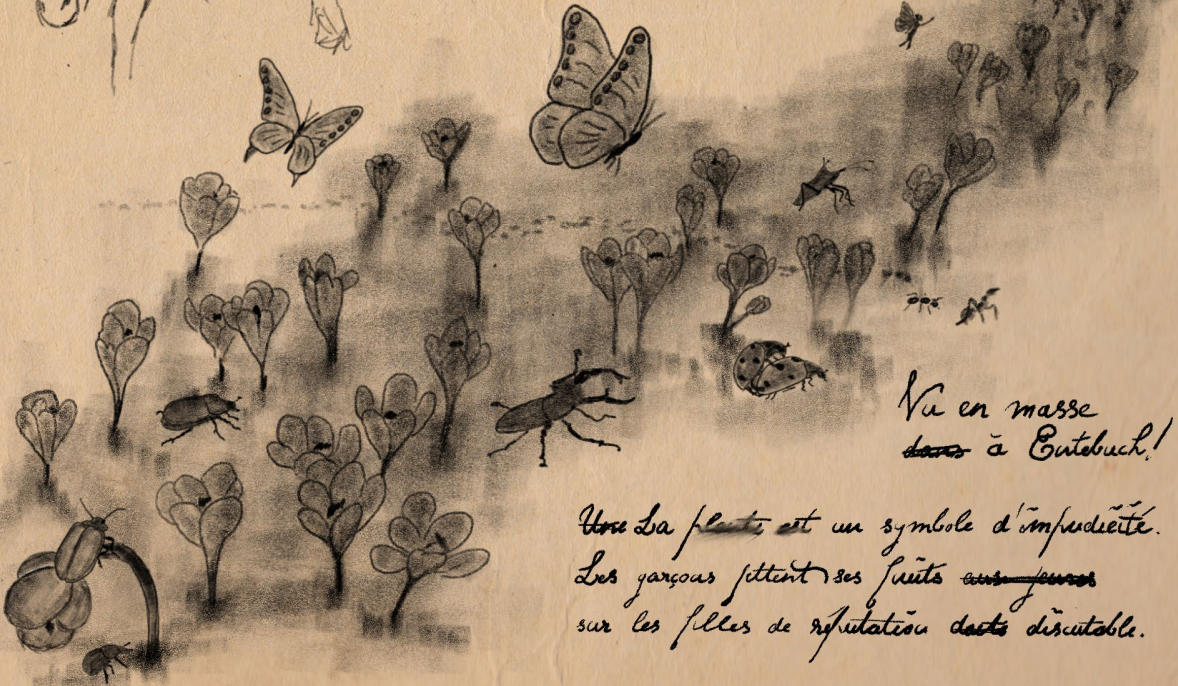 Vu en masse
dans à Entebuch!
Une La plante est un symbole d'impudicité.
Les garçons jettent ses fruits aux jeunes
sur les filles de réputation douts discutable.